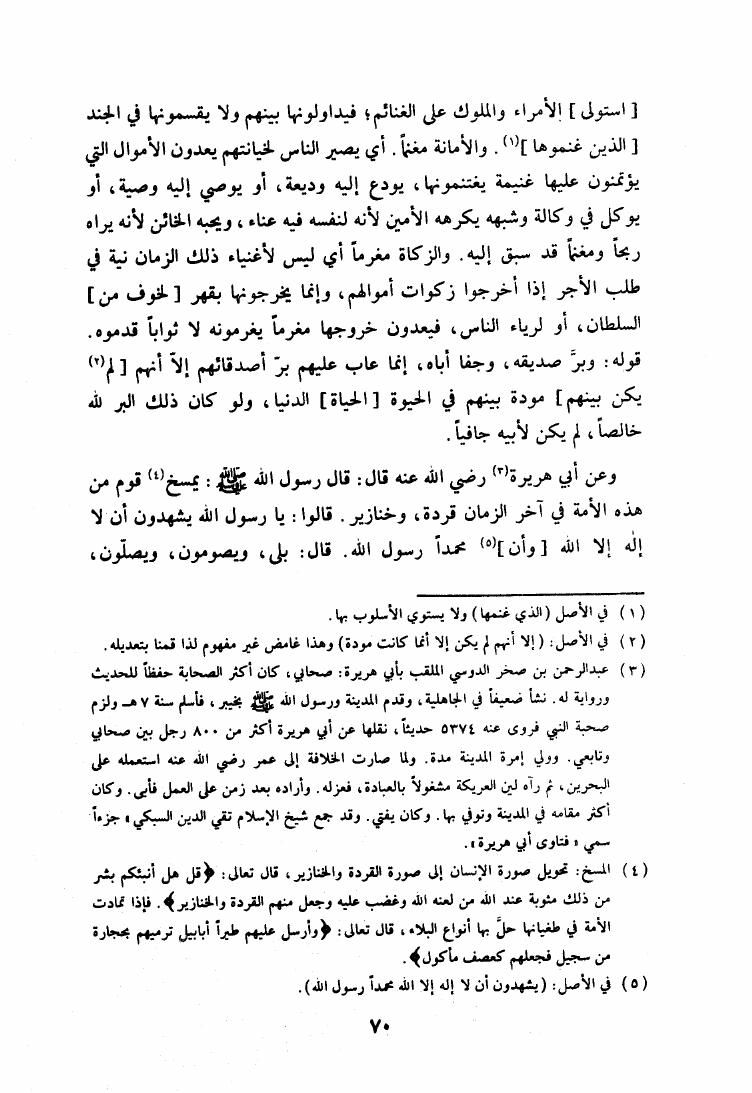 [ استولى ] الأمراء والملوك على الغنائم؛ فيداولونها بينهم ولا يقسمونها في الجند
[ الذين غنموها ](١). والأمانة مغنماً. أي يصير الناس لخيانتهم يعدون الأموال التي
يؤتمنون عليها غنيمة يغتنمونها، يودع إليه وديعة، أو يوصي إليه وصية، أو
يوكل في وكالة وشبهه يكرهه الأمين لأنه لنفسه فيه عناء، ويحبه الخائن لأنه يراه
ربحاً ومغنماً قد سبق إليه. والزكاة مغرماً أي ليس لأغنياء ذلك الزمان نية في
طلب الأجر إذا أخرجوا زكوات أموالهم، وإنما يخرجونها بقهر [ لخوف من ]
السلطان، أو لرياء الناس، فيعدون خروجها مغرماً يغرمونه لا ثواباً قدموه.
قوله: وبرَّ صديقه، وجفا أباه، إنما عاب عليهم برّ أصدقائهم إلاّ أنهم [ لم(٢)
يكن بينهم ] مودة بينهم في الحيوة [ الحياة ] الدنيا، ولو كان ذلك البر لله
خالصاً، لم يكن لأبيه جافياً.
وعن أبي هريرة(٣) رضي الله عنه قال: قال رسول الله ﷺ: يمسخ(٤) قوم من
هذه الأمة في آخر الزمان قردة، وخنازير. قالوا: يا رسول الله يشهدون أن لا
إلٰه إلا الله [ وأن ](٥) محمداً رسول الله. قال: بلى، ويصومون، ويصلّون،
(١) في الأصل (الذي غنمها) ولا يستوي الأسلوب بها.
(٢) في الأصل: (إلا أنهم لم يكن إلا أنما كانت مودة) وهذا غامض غير مفهوم لذا قمنا بتعديله.
(٣) عبدالرحمن بن صخر الدوسي الملقب بأبي هريرة: صحابي، كان أكثر الصحابة حفظاً للحديث
ورواية له. نشأ ضعيفاً في الجاهلية، وقدم المدينة ورسول الله ﷺ بخيبر، فأسلم سنة ٧ هـ ولزم
صحبة النبي فروى عنه ٥٣٧٤ حديثاً، نقلها عن أبي هريرة أكثر من ٨٠٠ رجل بين صحابي
وتابعي. وولي إمرة المدينة مدة. ولما صارت الخلافة إلى عمر رضي الله عنه استعمله على
البحرين، ثم رآه لين العريكة مشغولاً بالعبادة، فعزله. وأراده بعد زمن على العمل فأبى. وكان
أكثر مقامه في المدينة وتوفي بها. وكان يفتي. وقد جمع شيخ الإسلام تقي الدين السبكي « جزءاً
سمي « فتاوى أبي هريرة ».
(٤) المسخ: تحويل صورة الإنسان إلى صورة القردة والخنازير، قال تعالى: ﴿قل هل أنبئكم بشر
من ذلك مثوبة عند الله من لعنه الله وغضب عليه وجعل منهم القردة والخنازير﴾. فإذا تمادت
الأمة في طغيانها حلَّ بها أنواع البلاء، قال تعالى: ﴿وأرسل عليهم طيراً أبابيل ترميهم بحجارة
من سجيل فجعلهم كعصف مأكول﴾.
(٥) في الأصل: (يشهدون أن لا إله إلا الله محمداً رسول الله).
٧٠